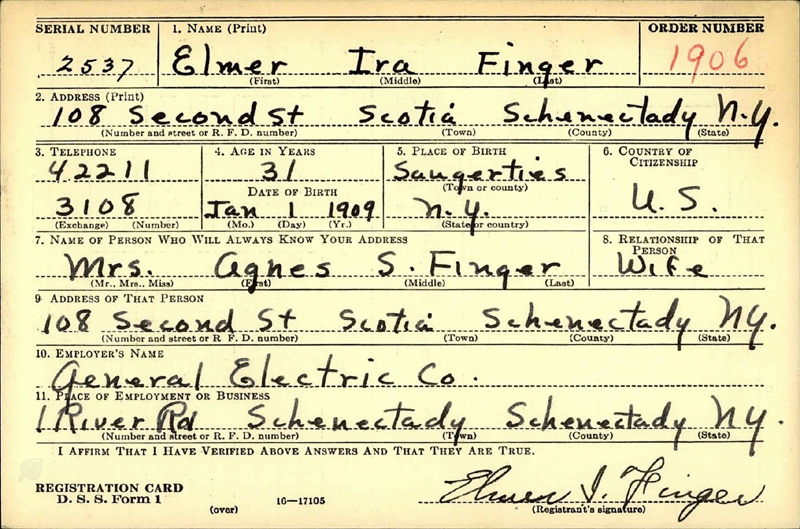 SERIAL NUMBER 1. NAME (Print) ORDER NUMBER
2537 Elmer Ira Finger 1906
(First) (Middle) (Last)
2. ADDRESS (Print)
108 Second St Scotia Schenectady N.Y.
(Number and street or R. F. D. number) (Town) (County) (State)
3. TELEPHONE 4. AGE IN YEARS 5. PLACE OF BIRTH 6. COUNTRY OF CITIZENSHIP
42211 31 Saugerties
(Town or county)
DATE OF BIRTH
3108 Jan 1 1909 N.Y. U.S.
(Exchange) (Number) (Mo.) (Day) (Yr.) (State or country)
7. NAME OF PERSON WHO WILL ALWAYS KNOW YOUR ADDRESS 8. RELATIONSHIP OF THAT PERSON
Mrs. Agnes S. Finger Wife
(Mr., Mrs., Miss) (First) (Middle) (Last)
9. ADDRESS OF THAT PERSON
108 Second St Scotia Schenectady NY.
(Number and street or R. F. D. number) (Town) (County) (State)
10. EMPLOYER'S NAME
General Electric Co.
11. PLACE OF EMPLOYMENT OR BUSINESS
1 River Rd Schenectady Schenectady NY.
(Number and street or R. F. D. number) (Town) (County) (State)
I AFFIRM THAT I HAVE VERIFIED ABOVE ANSWERS AND THAT THEY ARE TRUE.
REGISTRATION CARD
D. S. S. Form 1 (over) 16—17105 Elmer I. Finger
(Registrant's signature)